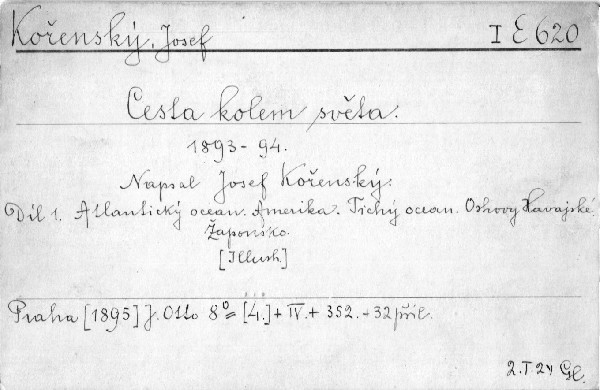 Kořenský, Josef I E 620
Cesta kolem světa.
1893-94.
Napsal Josef Kořenský.
Díl 1. Atlantický ocean. Amerika. Tichý ocean. Ostrovy Havajské.
Žaponsko.
[Illustr.]
Praha [1895] J. Otto 8° = [4.] + IV. + 352. + 32 příl.
2.I.24 Gl.